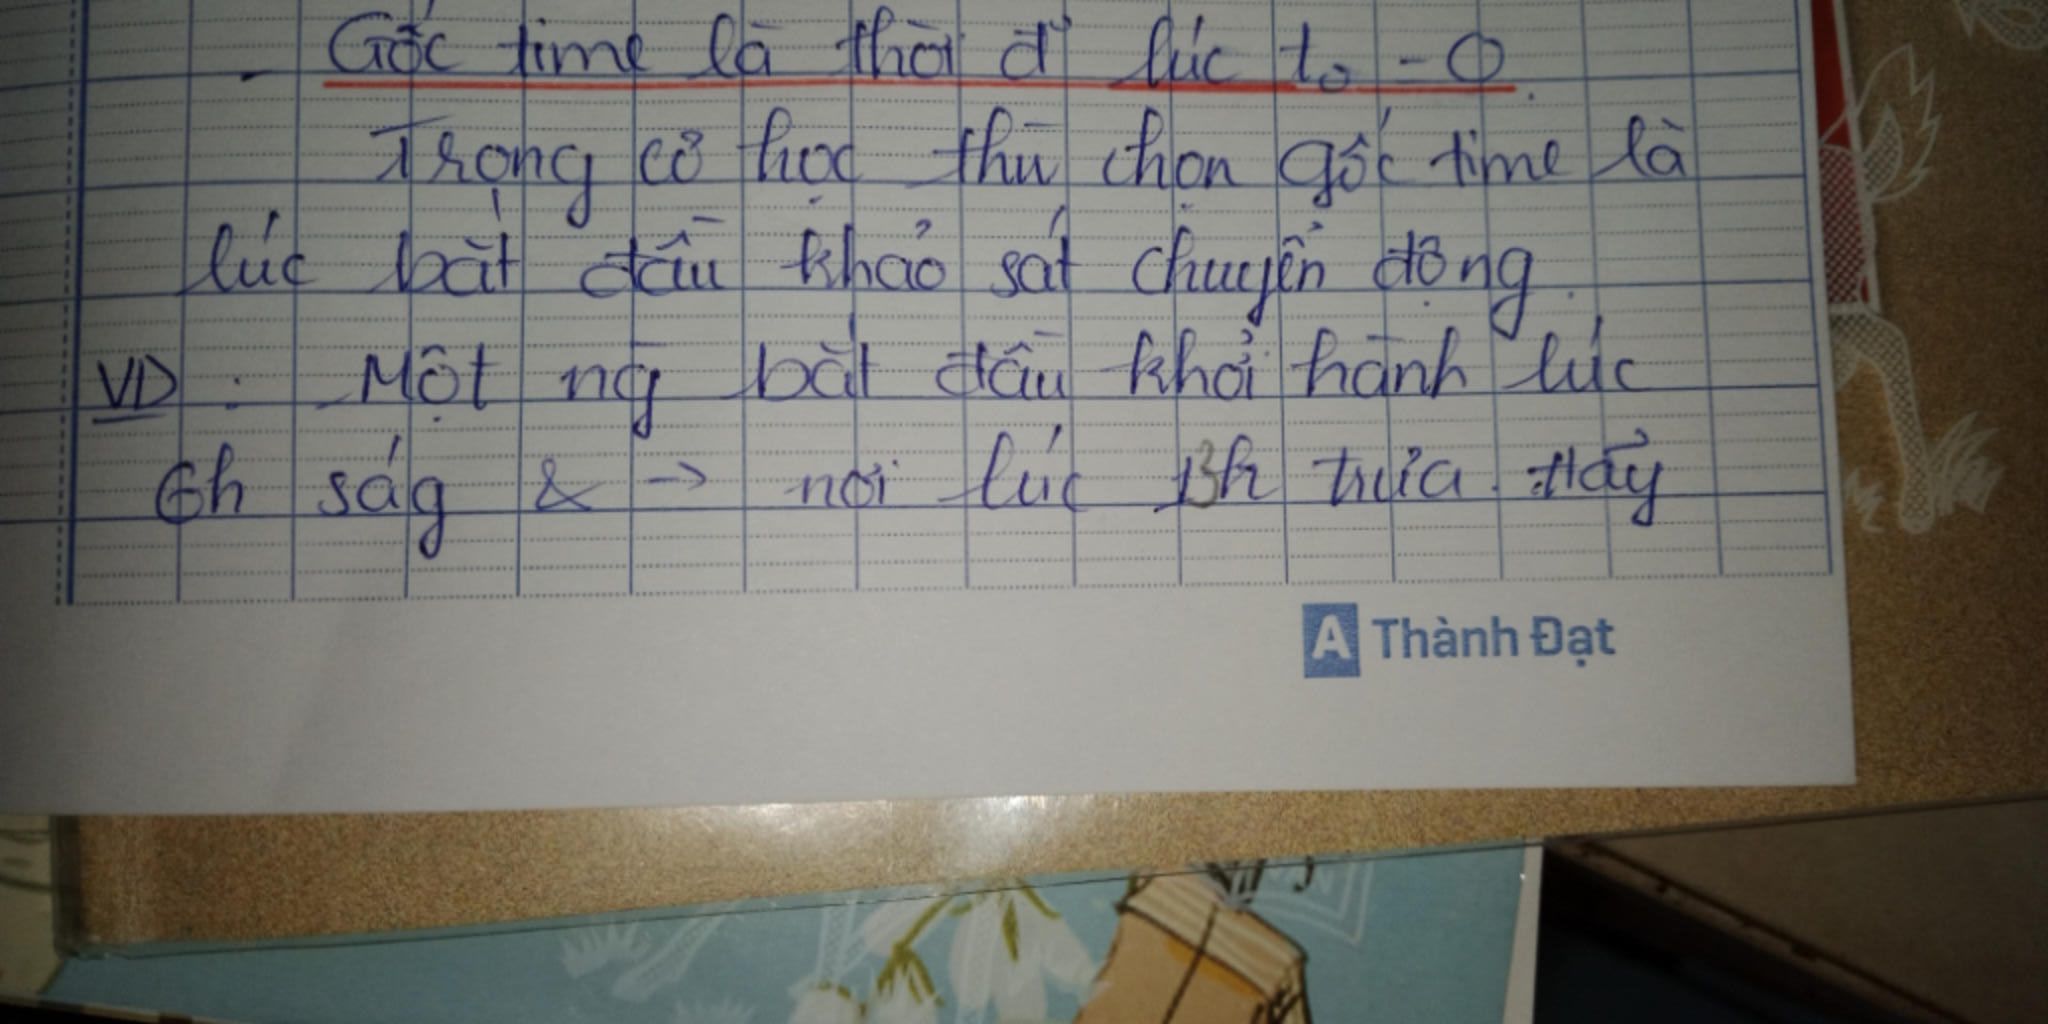 - Gốc time là thời đ' lúc t₀ = 0.
Trong cơ học thì chọn gốc time là
lúc bắt đầu khảo sát chuyển động.
VD : Một ng̀ bắt đầu khởi hành lúc
6h ság & → nơi lúc 13h trưa. Hãy
A Thành Đạt